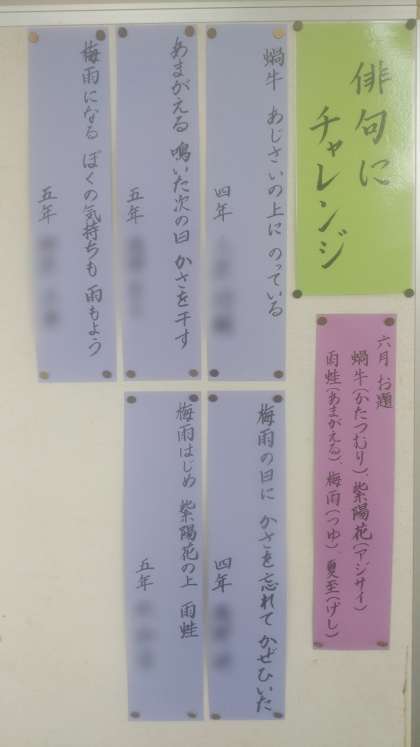 俳句に
チャレンジ
六月 お題
蝸牛(かたつむり)、紫陽花(アジサイ)
雨蛙(あまがえる)、梅雨(つゆ)、夏至(げし)
蝸牛 あじさいの上に のっている
四年
あまがえる 鳴いた次の日 かさを干す
五年
梅雨になる ぼくの気持ちも 雨もよう
五年
梅雨の日に かさを忘れて かぜひいた
四年
梅雨はじめ 紫陽花の上 雨蛙
五年